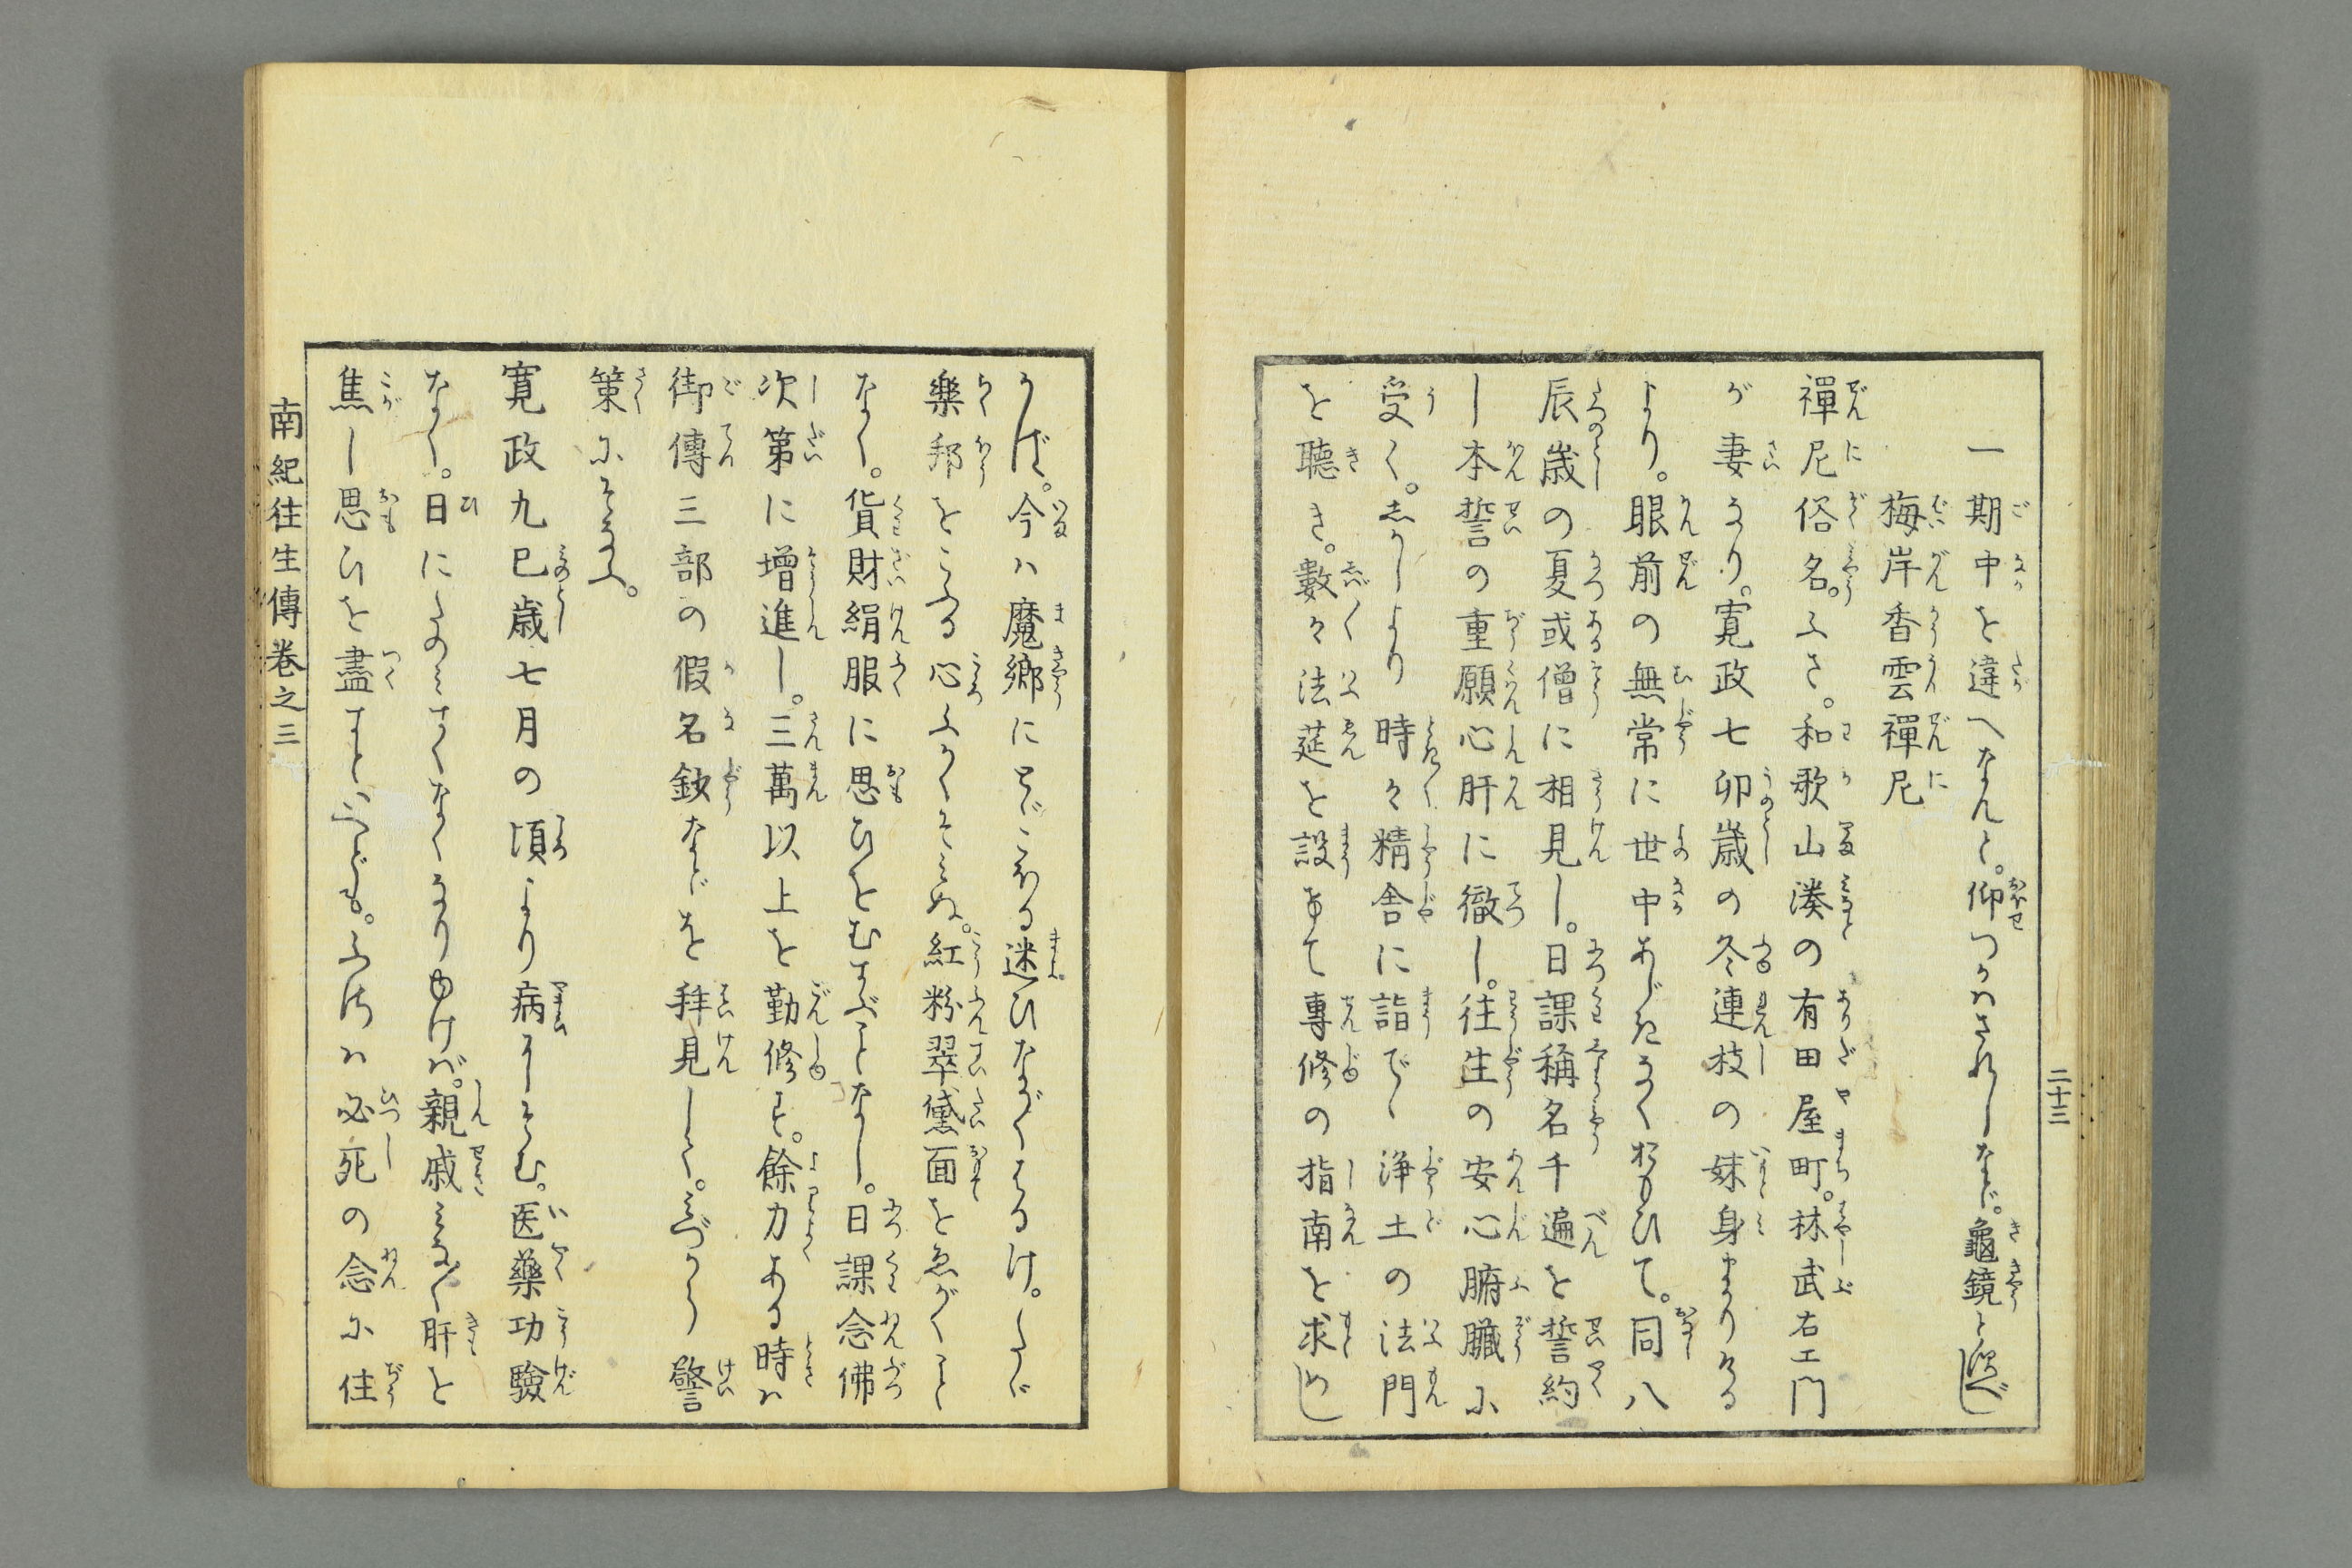 二十三
一期中を違へなんと。仰つかはされしなど。龜鏡とすべし
梅岸香雲禪尼
禪尼俗名。ふさ。和歌山湊の有田屋町。林武右エ門
が妻なり。寛政七卯歳の冬連枝の妹身まかりける
より。眼前の無常に世中あぢきなくおもひて。同八
辰歳の夏或僧に相見し。日課稱名千遍を誓約
し本誓の重願心肝に徹し。往生の安心腑臓に
受く。しかしより時々精舎に詣で、浄土の法門
を聴き。數々法莚を設まて專修の指南を求めし
かば。今は魔郷にとゞこほる迷ひながくはるけ。たゞ
樂邦をこふる心ふかくそみぬ。紅粉翠黛面をゑがくこと
なく。貨財絹服に思ひをむすぶことなし。日課念佛
次第に増進し。三萬以上を勤修す。餘力ある時は
御傳三部の假名鈔などを拜見して。みづから警
策にそなふ。
寛政九巳歳七月の頃より病にしそむ。医藥功驗
なく。日にたのみすくなくなりゆけば。親戚みな〳〵肝を
焦し思ひを盡すといへども。ふさは必死の念に住
南紀往生傳卷之三